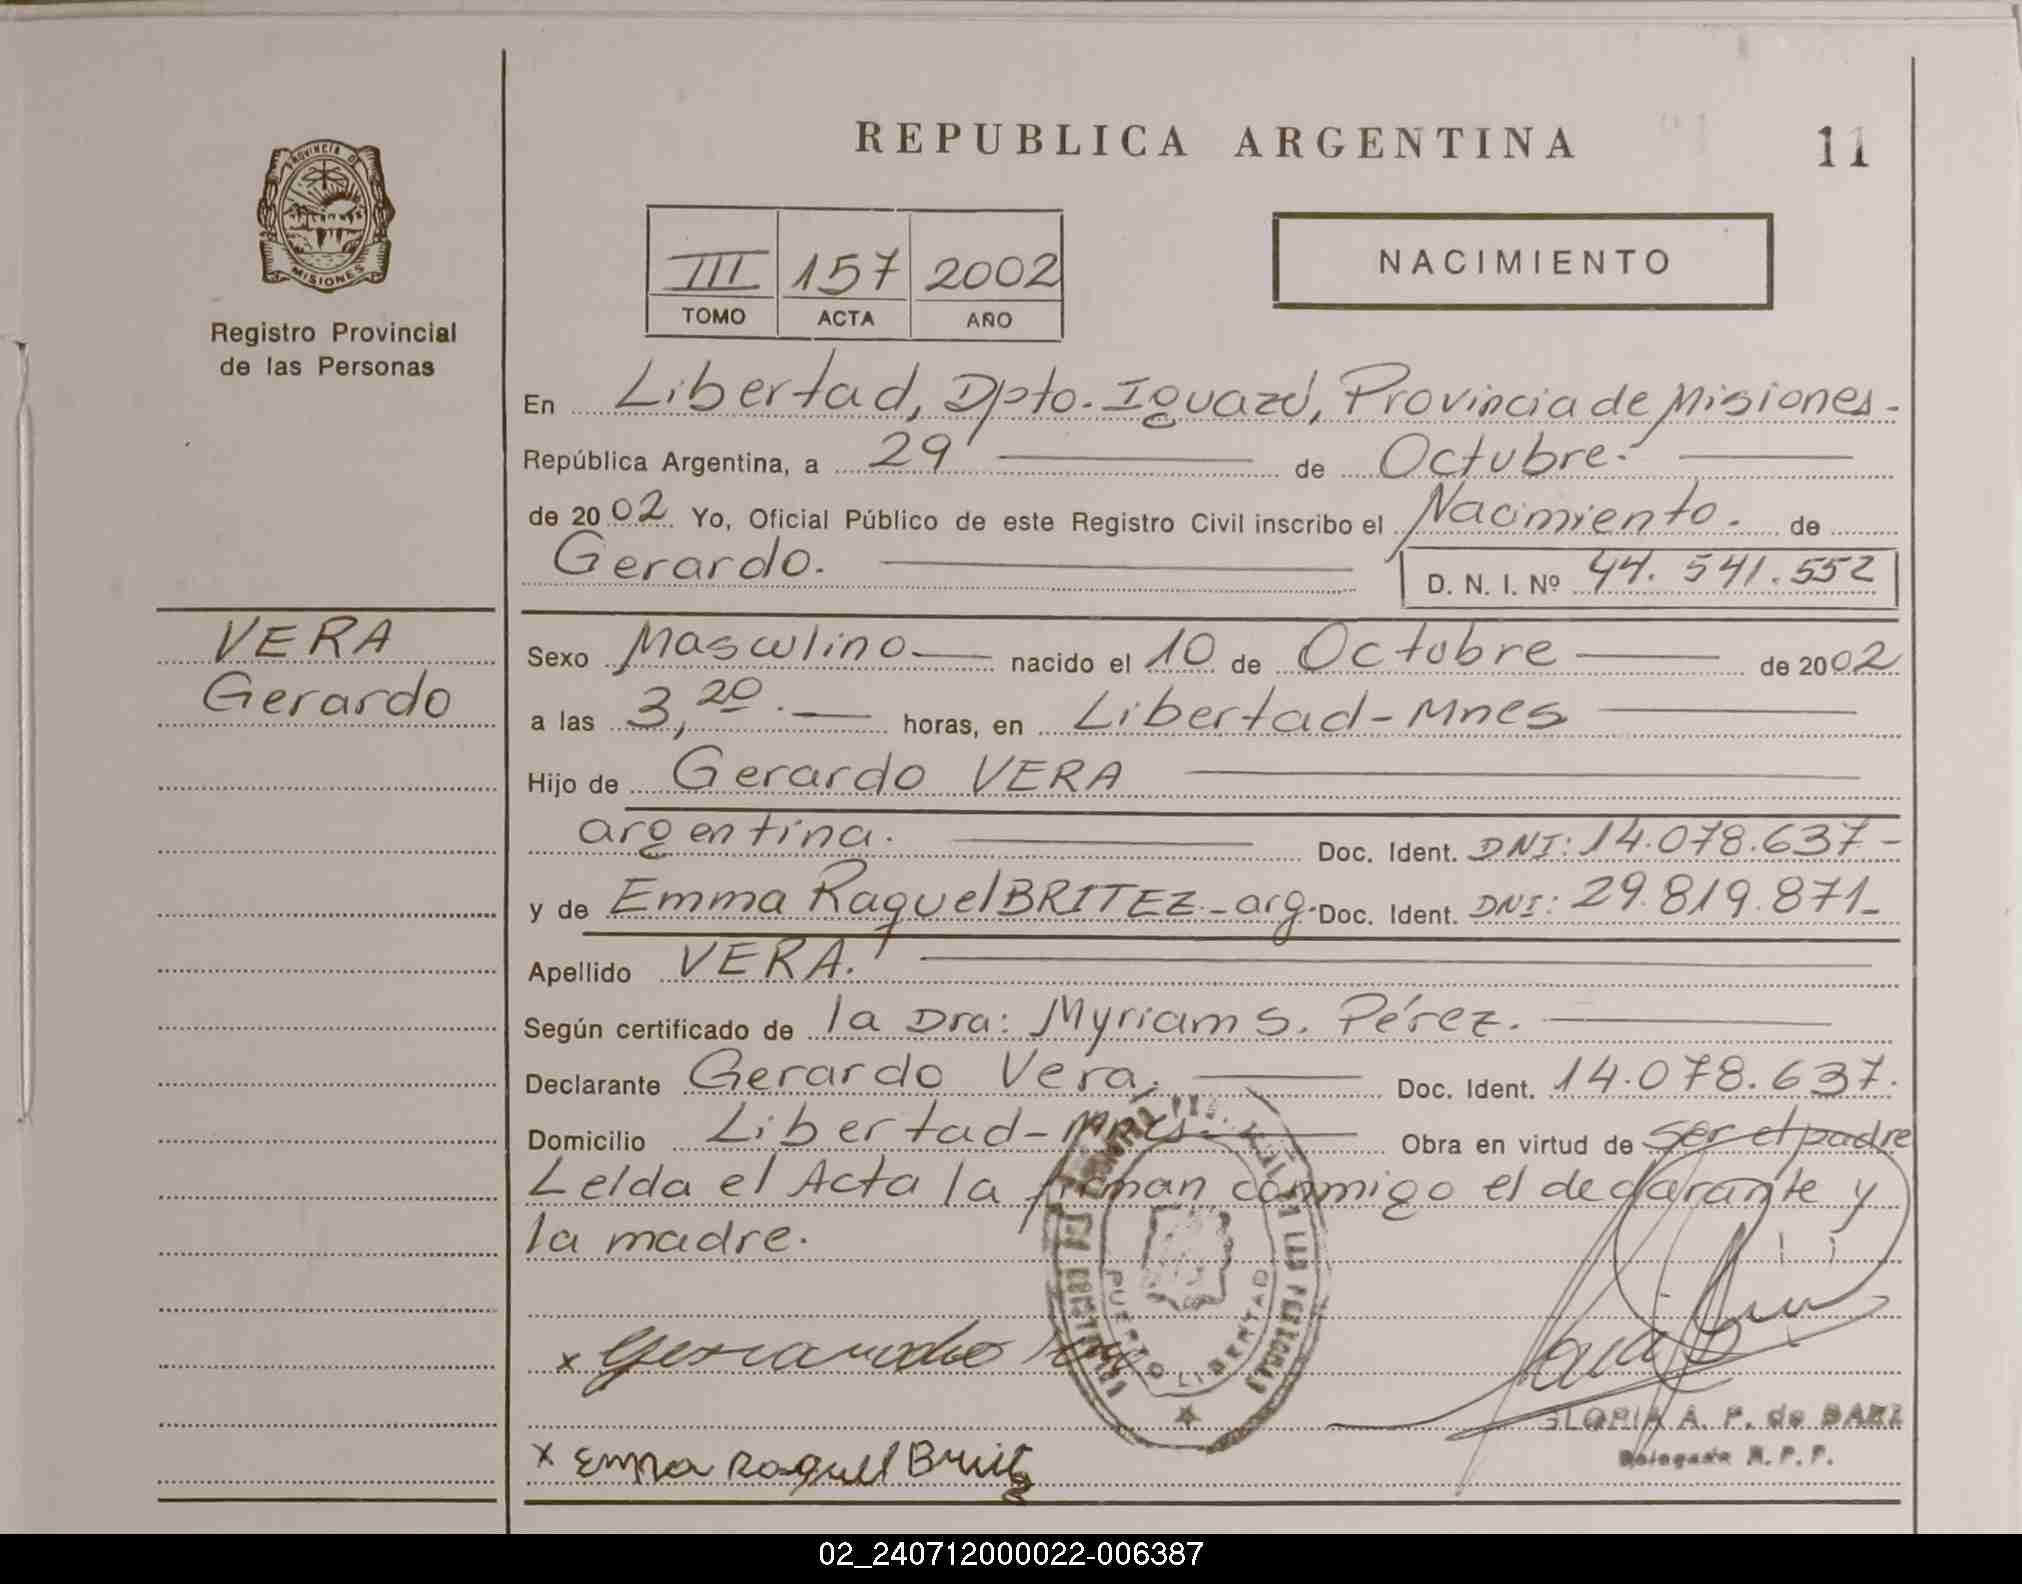 REPUBLICA ARGENTINA
11
PROVINCIA DE
MISIONES
Registro Provincial
de las Personas
III 157 2002
TOMO ACTA AÑO
NACIMIENTO
En Libertad, Dpto. Iguazú, Provincia de Misiones.-
República Argentina, a 29 de Octubre.-
de 2002 Yo, Oficial Público de este Registro Civil inscribo el Nacimiento. de
Gerardo.
D. N. I. Nº 44.541.552
VERA
Gerardo
Sexo Masculino nacido el 10 de Octubre de 2002
a las 3,20.- horas, en Libertad-Mnes
Hijo de Gerardo VERA
argentina. Doc. Ident. DNI: 14.078.637-
y de Emma Raquel BRITEZ.- arg. Doc. Ident. DNI: 29.819.871-
Apellido VERA.
Según certificado de la Dra: Myriam S. Pérez.
Declarante Gerardo Vera. Doc. Ident. 14.078.637.
Domicilio Libertad-Mnes. Obra en virtud de ser el padre
Leída el Acta la firman conmigo el declarante y
la madre.
PUERTO LIBERTAD
x Gerardo
GLORIA A. P. de BAEZ
Delegada R. P. P.
x Emma Raquel Britez
02_240712000022-006387